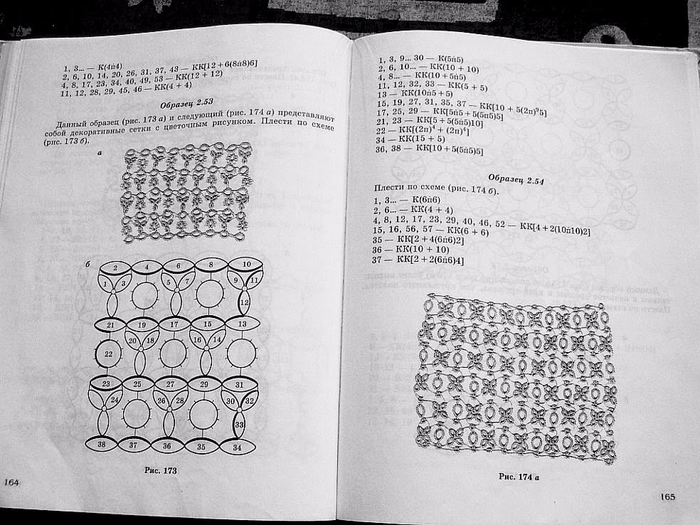 1, 3... — К(4п4)
2, 6, 10, 14, 20, 26, 31, 37, 43 — КК[12+6(8п8)6]
4, 8, 17, 23, 34, 40, 49, 53 — КК(12 + 12)
11, 12, 28, 29, 45, 46 — КК(4 + 4)
Образец 2.53
Данный образец (рис. 173 а) и следующий (рис. 174 а) представляют
собой декоративные сетки с цветочным рисунком. Плести по схеме
(рис. 173 б).
а
б
2 4 6 8 10
1 3 5 7 9 11
12
21 19 17 15 13
20 18 16 14
22
23 25 27 29 31
24 26 28 30 32
33
38 37 36 35 34
Рис. 173
164
1, 3, 9... 30 — К(5п5)
2, 6, 10... — КК(10 + 10)
4, 8... — КК(10 + 5п5)
11, 12, 32, 33 — КК(5 + 5)
13 — КК(10п5 + 5)
15, 19, 27, 31, 35, 37 — КК[10 + 5(2п)⁹5]
17, 25, 29 — КК[5п5 + 5(5п5)5]
21, 23 — КК[5 + 5(5п5)10]
22 — КК[(2п)⁴ + (2п)⁴]
34 — КК(15 + 5)
36, 38 — КК[10 + 5(5п5)5]
Образец 2.54
Плести по схеме (рис. 174 б).
1, 3... — К(6п6)
2, 6... — КК(4 + 4)
4, 8, 12, 17, 23, 29, 40, 46, 52 — КК[4+2(10п10)2]
15, 16, 56, 57 — КК(6 + 6)
35 — КК[2 + 4(6п6)2]
36 — КК(10 + 10)
37 — КК[2 + 2(6п6)4]
Рис. 174 а
165